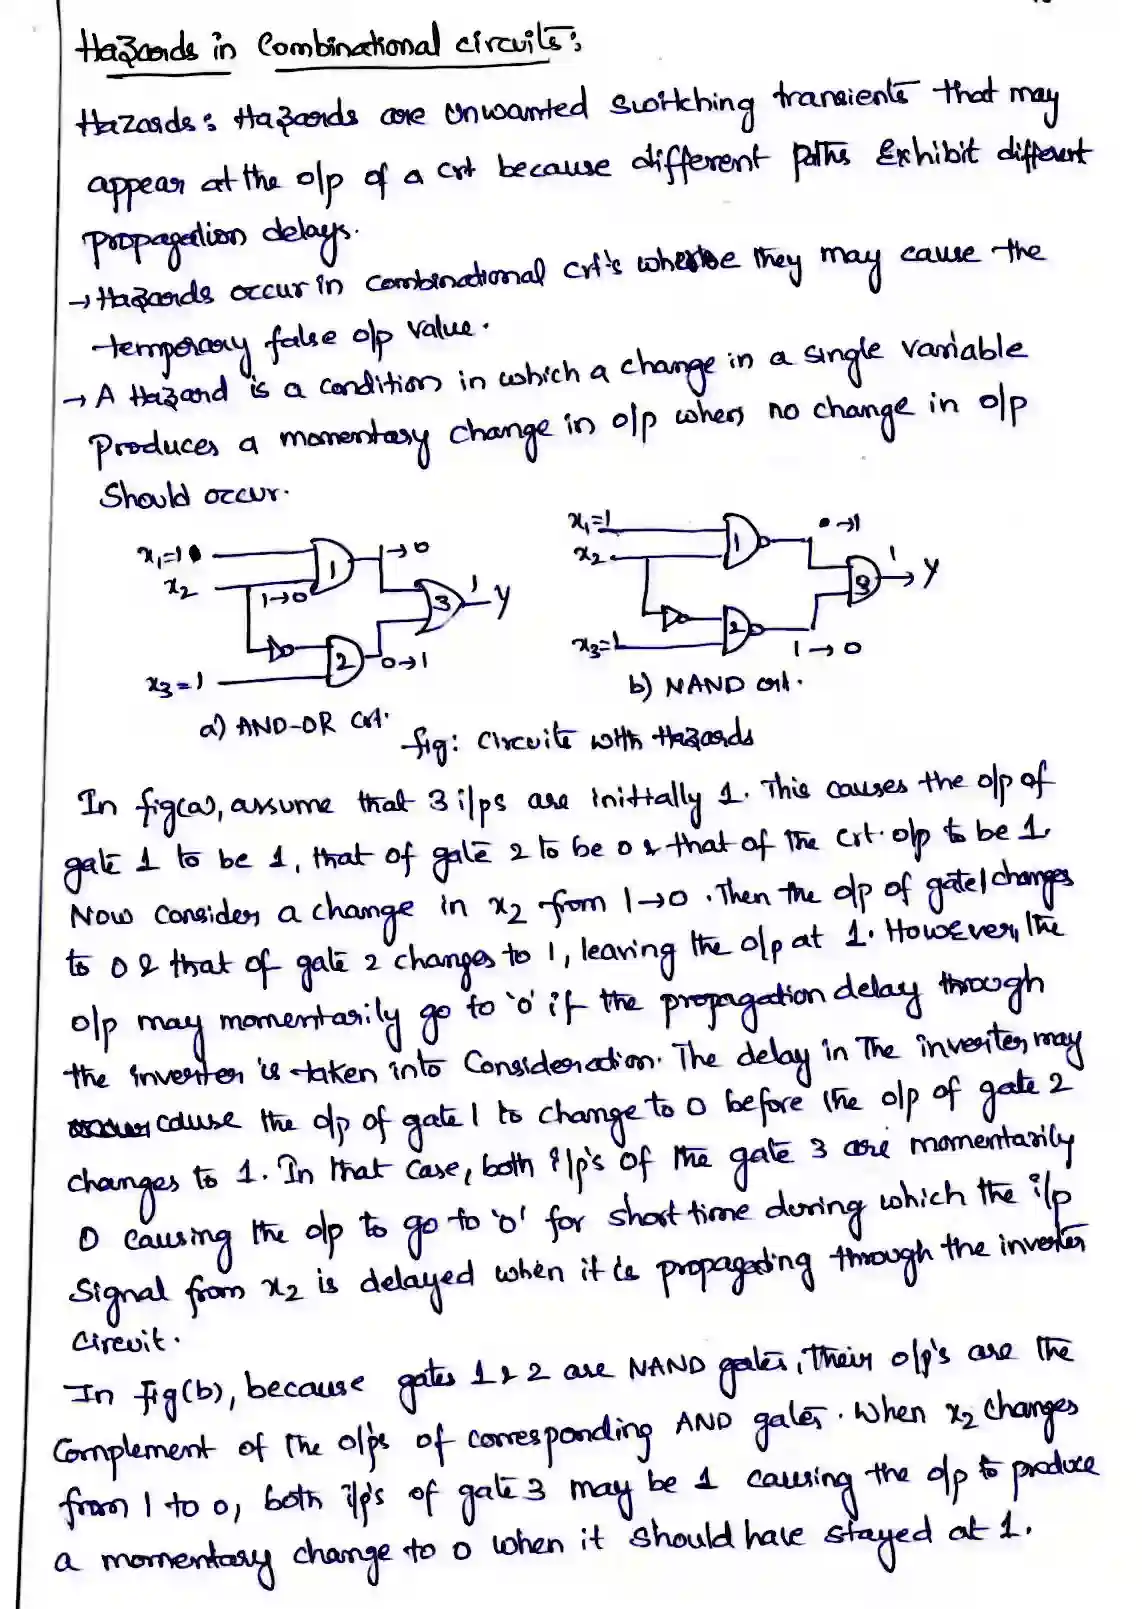 Hazards in Combinational circuits:
Hazards: Hazards are unwanted switching transients that may
appear at the o/p of a crt because different paths Exhibit different
propagation delays.
→ Hazards occur in combinational crt's where they may cause the
temporary false o/p value.
→ A Hazard is a condition in which a change in a single variable
Produces a momentary change in o/p when no change in o/p
Should occur.
x₁=1
x₂
1→0
x₃=1
1
2
3
1→0
0→1
1
Y
a) AND-OR crt.
x₁=1
x₂
x₃=1
1
2
3
→1
1→0
1
Y
b) NAND crt.
fig: Circuits with Hazards
In fig(a), assume that 3 i/ps are initially 1. This causes the o/p of
gate 1 to be 1, that of gate 2 to be 0 & that of the crt. o/p to be 1.
Now consider a change in x₂ from 1→0. Then the o/p of gate 1 changes
to 0 & that of gate 2 changes to 1, leaving the o/p at 1. However, the
o/p may momentarily go to '0' if the propagation delay through
the inverter is taken into Consideration. The delay in The inverter may
cause the o/p of gate 1 to change to 0 before the o/p of gate 2
changes to 1. In that case, both i/p's of the gate 3 are momentarily
0 causing the o/p to go to '0' for short time during which the i/p
Signal from x₂ is delayed when it is propagating through the inverter
circuit.
In Fig(b), because gates 1 & 2 are NAND gates, their o/p's are the
Complement of the o/p's of corresponding AND gates. When x₂ changes
from 1 to 0, both i/p's of gate 3 may be 1 causing the o/p to produce
a momentary change to 0 when it should have stayed at 1.